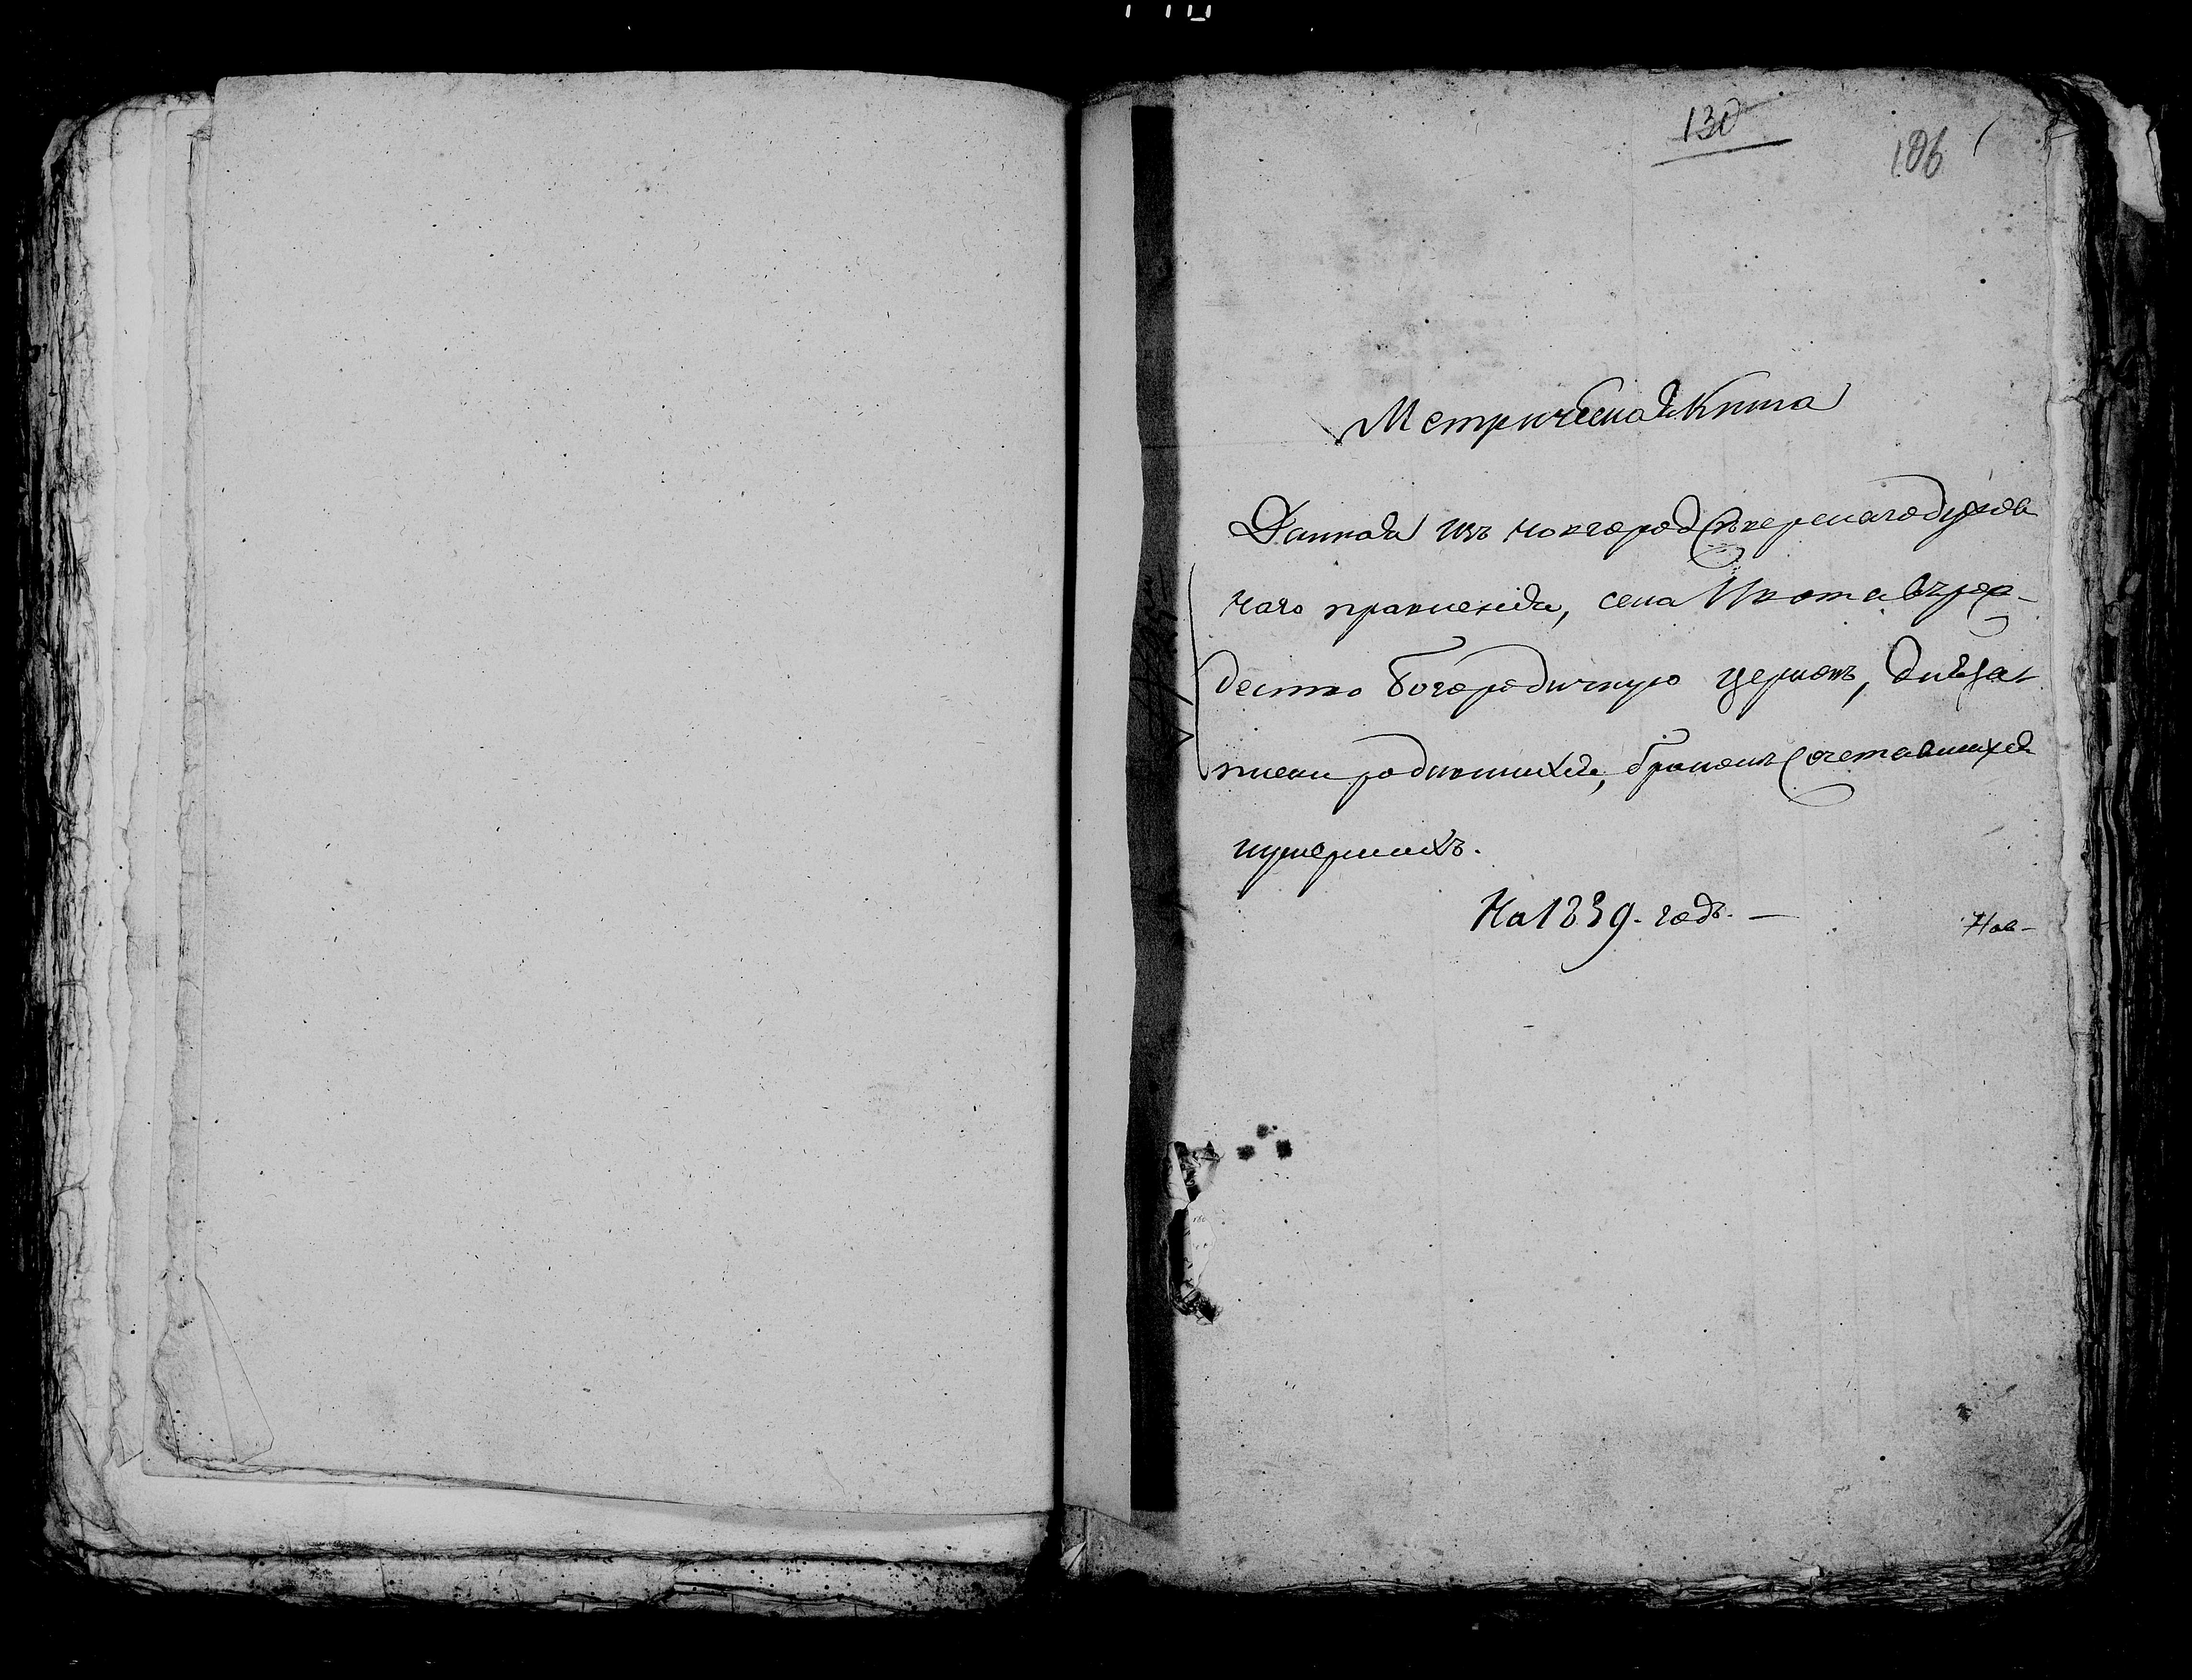 130
106
Метрическая Книга
Данная изъ новгородсѣверскаго духов
наго правленія, села Ивота въ рож-
дество Богородичную церковь, для за-
писки родившихся, бракомъ сочетавшихся
и умершихъ.
На 1839. годъ. —
Нов-